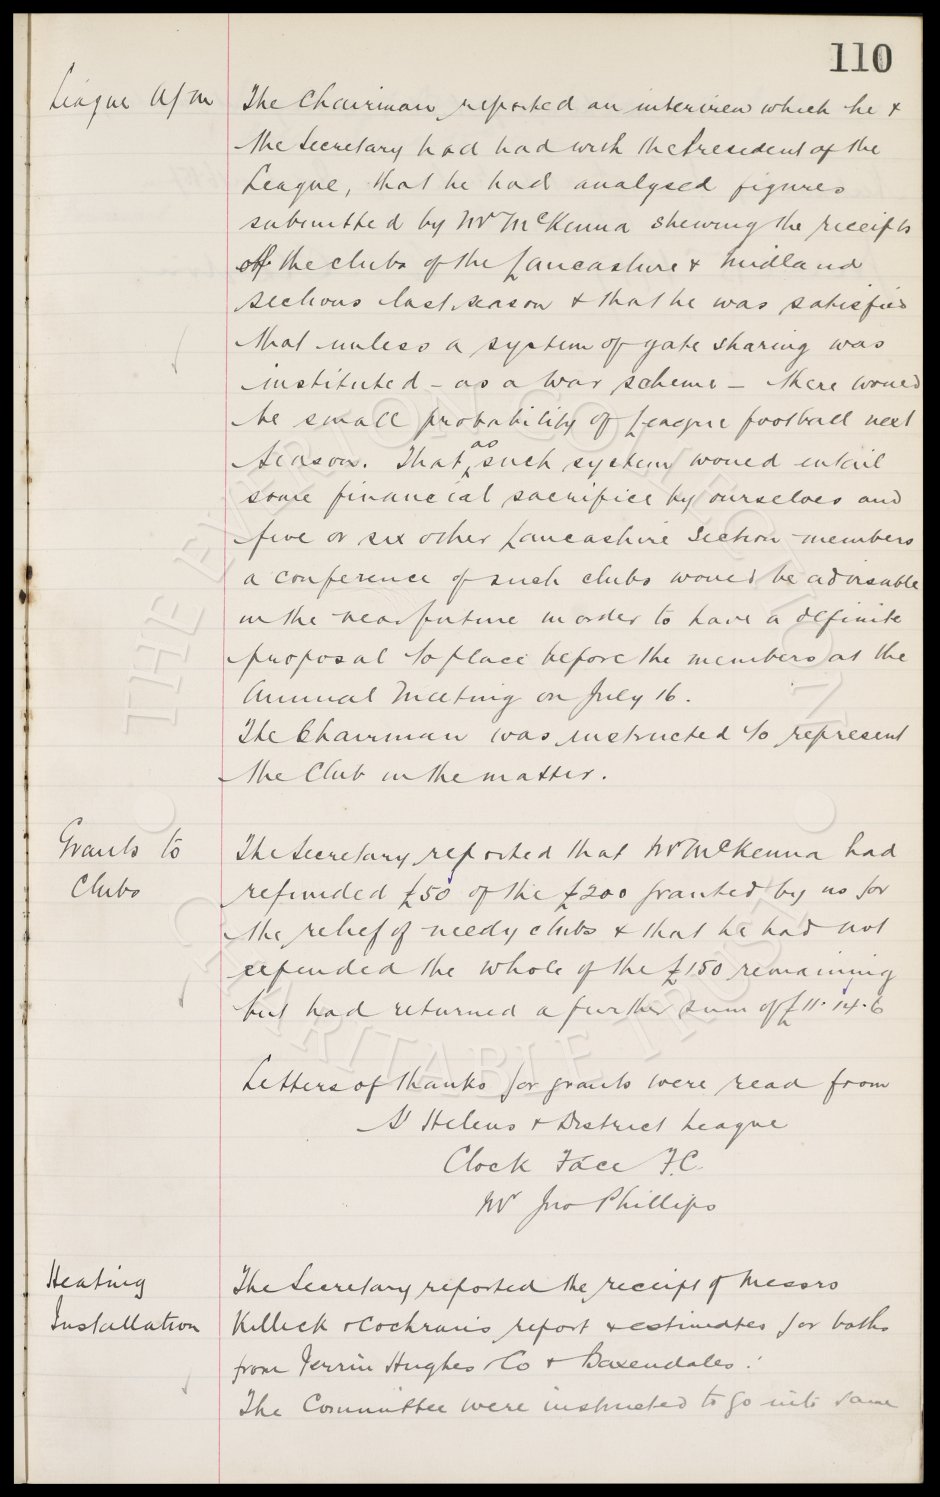 110
League A/m
The Chairman reported an interview which he &
the Secretary had had with the President of the
League, that he had analysed figures
submitted by Mr McKenna shewing the receipts
of the clubs of the Lancashire & Midland
sections last season & that he was satisfied
that unless a system of gate sharing was
instituted - as a War scheme - there would
be small probability of League football next
Season. That as such system would entail
some financial sacrifice by ourselves and
five or six other Lancashire Section members
a conference of such clubs would be advisable
in the near future in order to have a definite
proposal to place before the members at the
Annual Meeting on July 16.
The Chairman was instructed to represent
the Club in the matter.
Grants to
Clubs
The Secretary reported that Mr McKenna had
refunded £50 of the £200 granted by us for
the relief of needy clubs & that he had not
expended the whole of the £150 remaining
but had returned a further sum of £11.14.6
Letters of thanks for grants were read from
St Helens & District League
Clock Face F.C.
Mr Jno Phillips
Heating
Installation
The Secretary reported the receipt of Messrs
Killick & Cochran's report & estimates for baths
from Perrin Hughes & Co & Baxendales.
The Committee were instructed to go into same
THE EVERTON COLLECTION
CHARITABLE TRUST